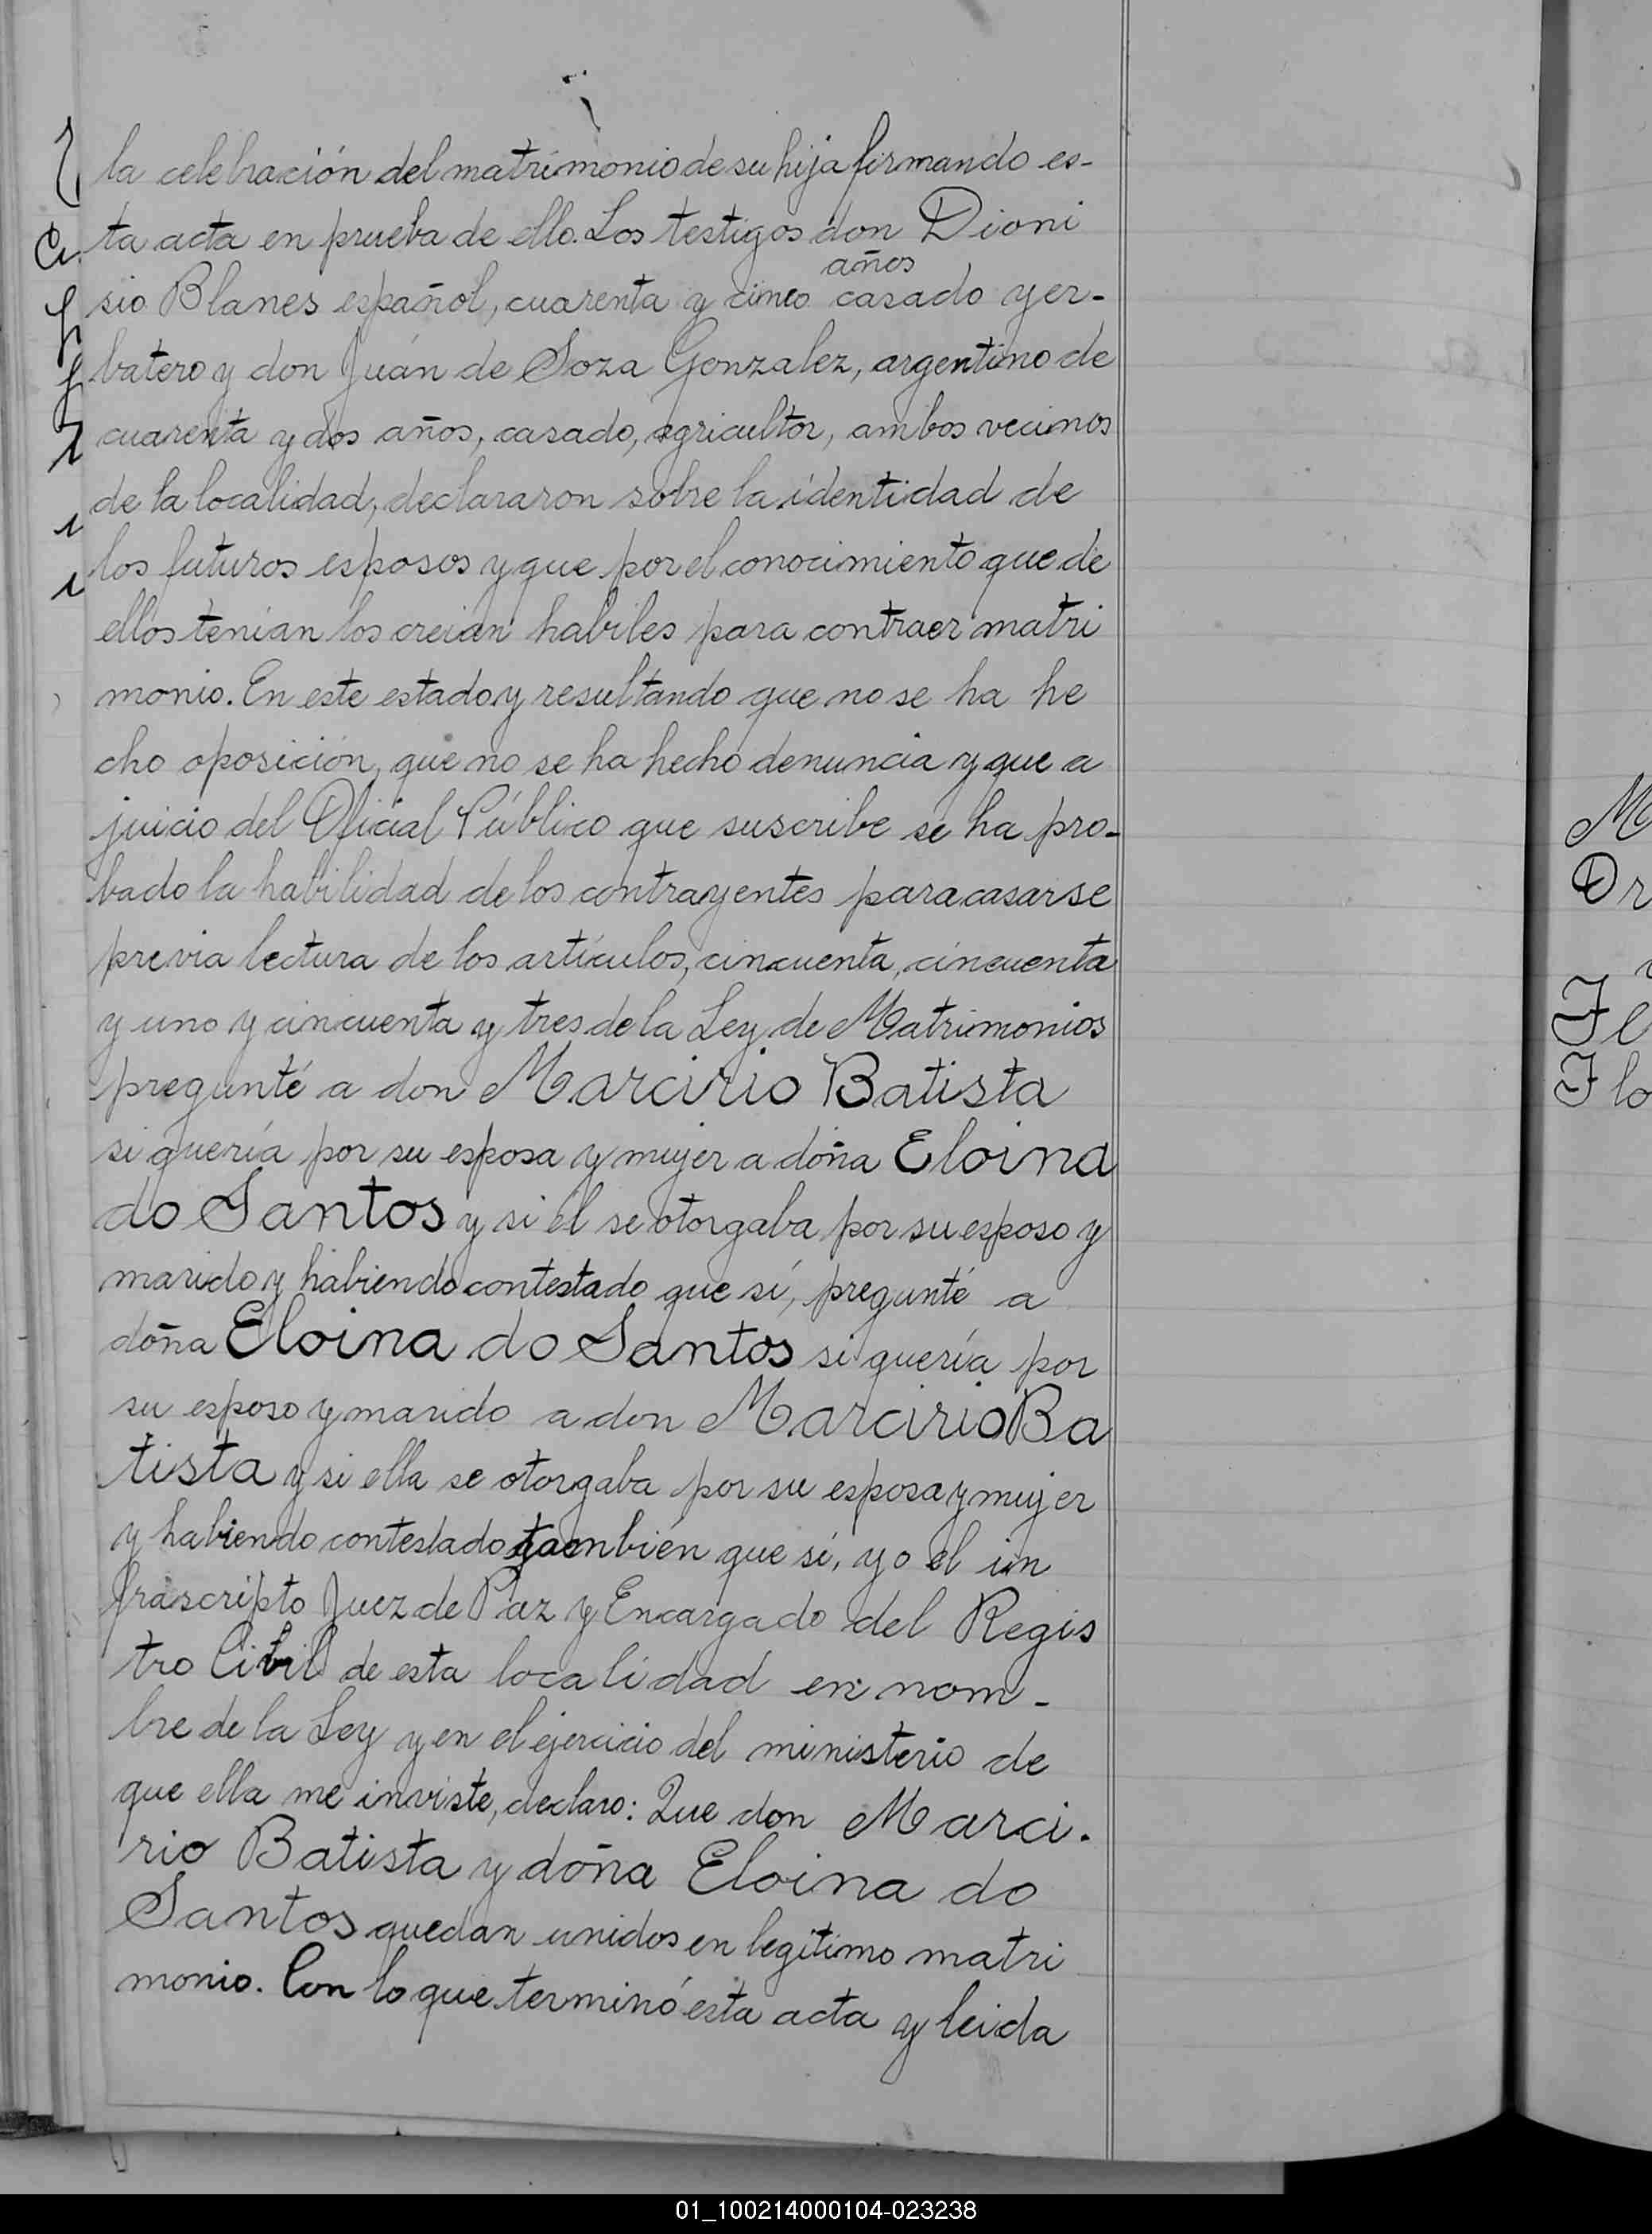 la celebración del matrimonio de su hija firmando es-
ta acta en prueba de ello. Los testigos don Dioni
años
sio Blanes español, cuarenta y cinco casado yer-
batero y don Juán de Soza Gonzalez, argentino de
cuarenta y dos años, casado, agricultor, ambos vecinos
de la localidad, declararon sobre la identidad de
los futuros esposos y que por el conocimiento que de
ellos tenian los creian habiles para contraer matri
monio. En este estado y resultando que no se ha he
cho oposición, que no se ha hecho denuncia y que a
juicio del Oficial Público que suscribe se ha pro-
bado la habilidad de los contrayentes para casarse
previa lectura de los artículos, cincuenta, cincuenta
y uno y cincuenta y tres de la Ley de Matrimonios
pregunté a don Marcirio Batista
si quería por su esposa y mujer a doña Eloina
do Santos y si él se otorgaba por su esposo y
marido y habiendo contestado que sí, pregunté a
doña Eloina do Santos si quería por
su esposo y marido a don Marcirio Ba
tista y si ella se otorgaba por su esposa y mujer
y habiendo contestado también que sí, yo el in
frascripto Juez de Paz y Encargado del Regis
tro Civil de esta localidad en nom-
bre de la Ley y en el ejercicio del ministerio de
que ella me inviste, declaro: Que don Marci-
rio Batista y doña Eloina do
Santos quedan unidos en legitimo matri
monio. Con lo que terminó esta acta y leida
M
Or
Fl
Flo
01_100214000104-023238